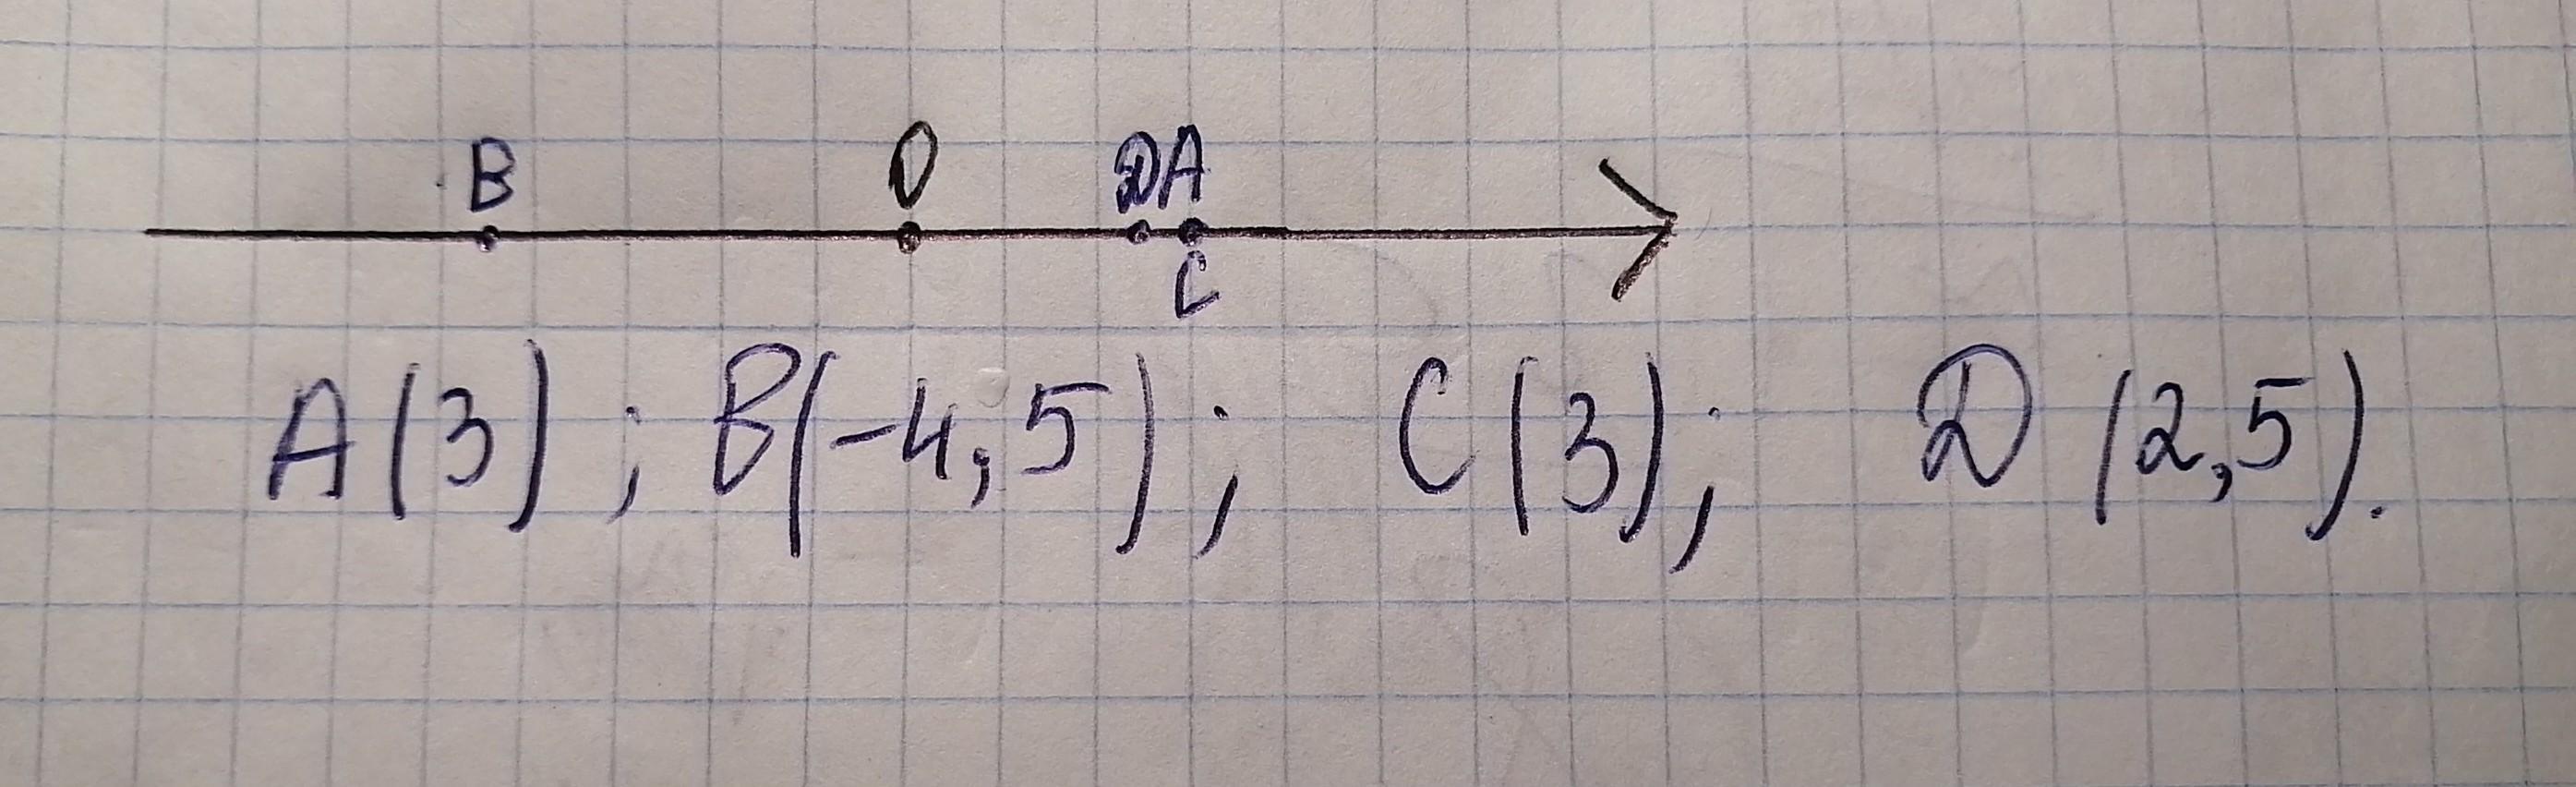 B O D A
C
A(3); B(-4,5); C(3); D(2,5).